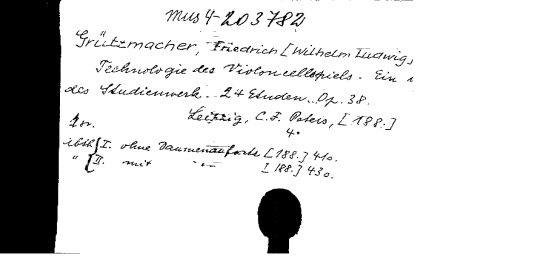 Mus 4-203782
Grützmacher, Friedrich [Wilhelm Ludwig,
Technologie des Violoncellspiels. Ein
des Studienwerk. 24 Etuden. Op. 38.
Leipzig, C. F. Peters, [188.]
4°
I. ohne Daumenaufsatz [188.] 41 o.
" II. mit " — [188.] 43 o.